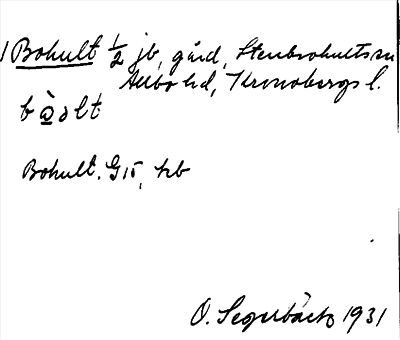 1 Bohult ½ jb, gård, Stenbrohults sn
Allbo hd, Kronobergs l.
bòəlt
Bohult. G15, hb
O. Segerbäck 1931